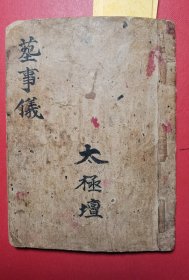 墓事儀
太極壇